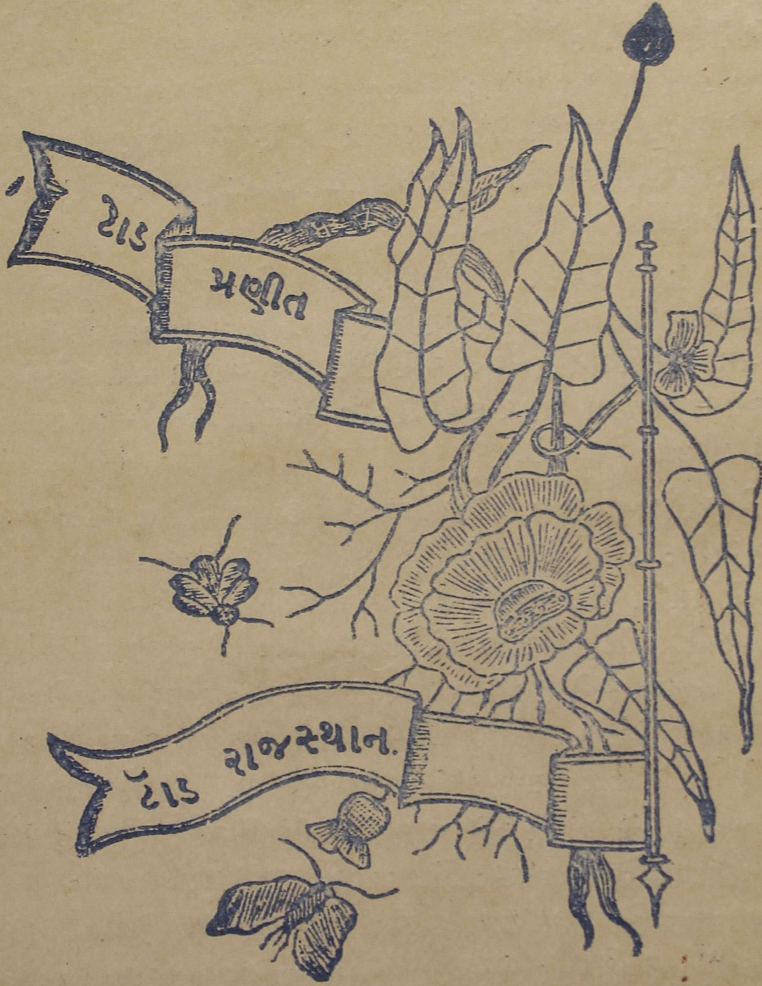 ટાડ
પ્રણીત
ટૉડ રાજસ્થાન.